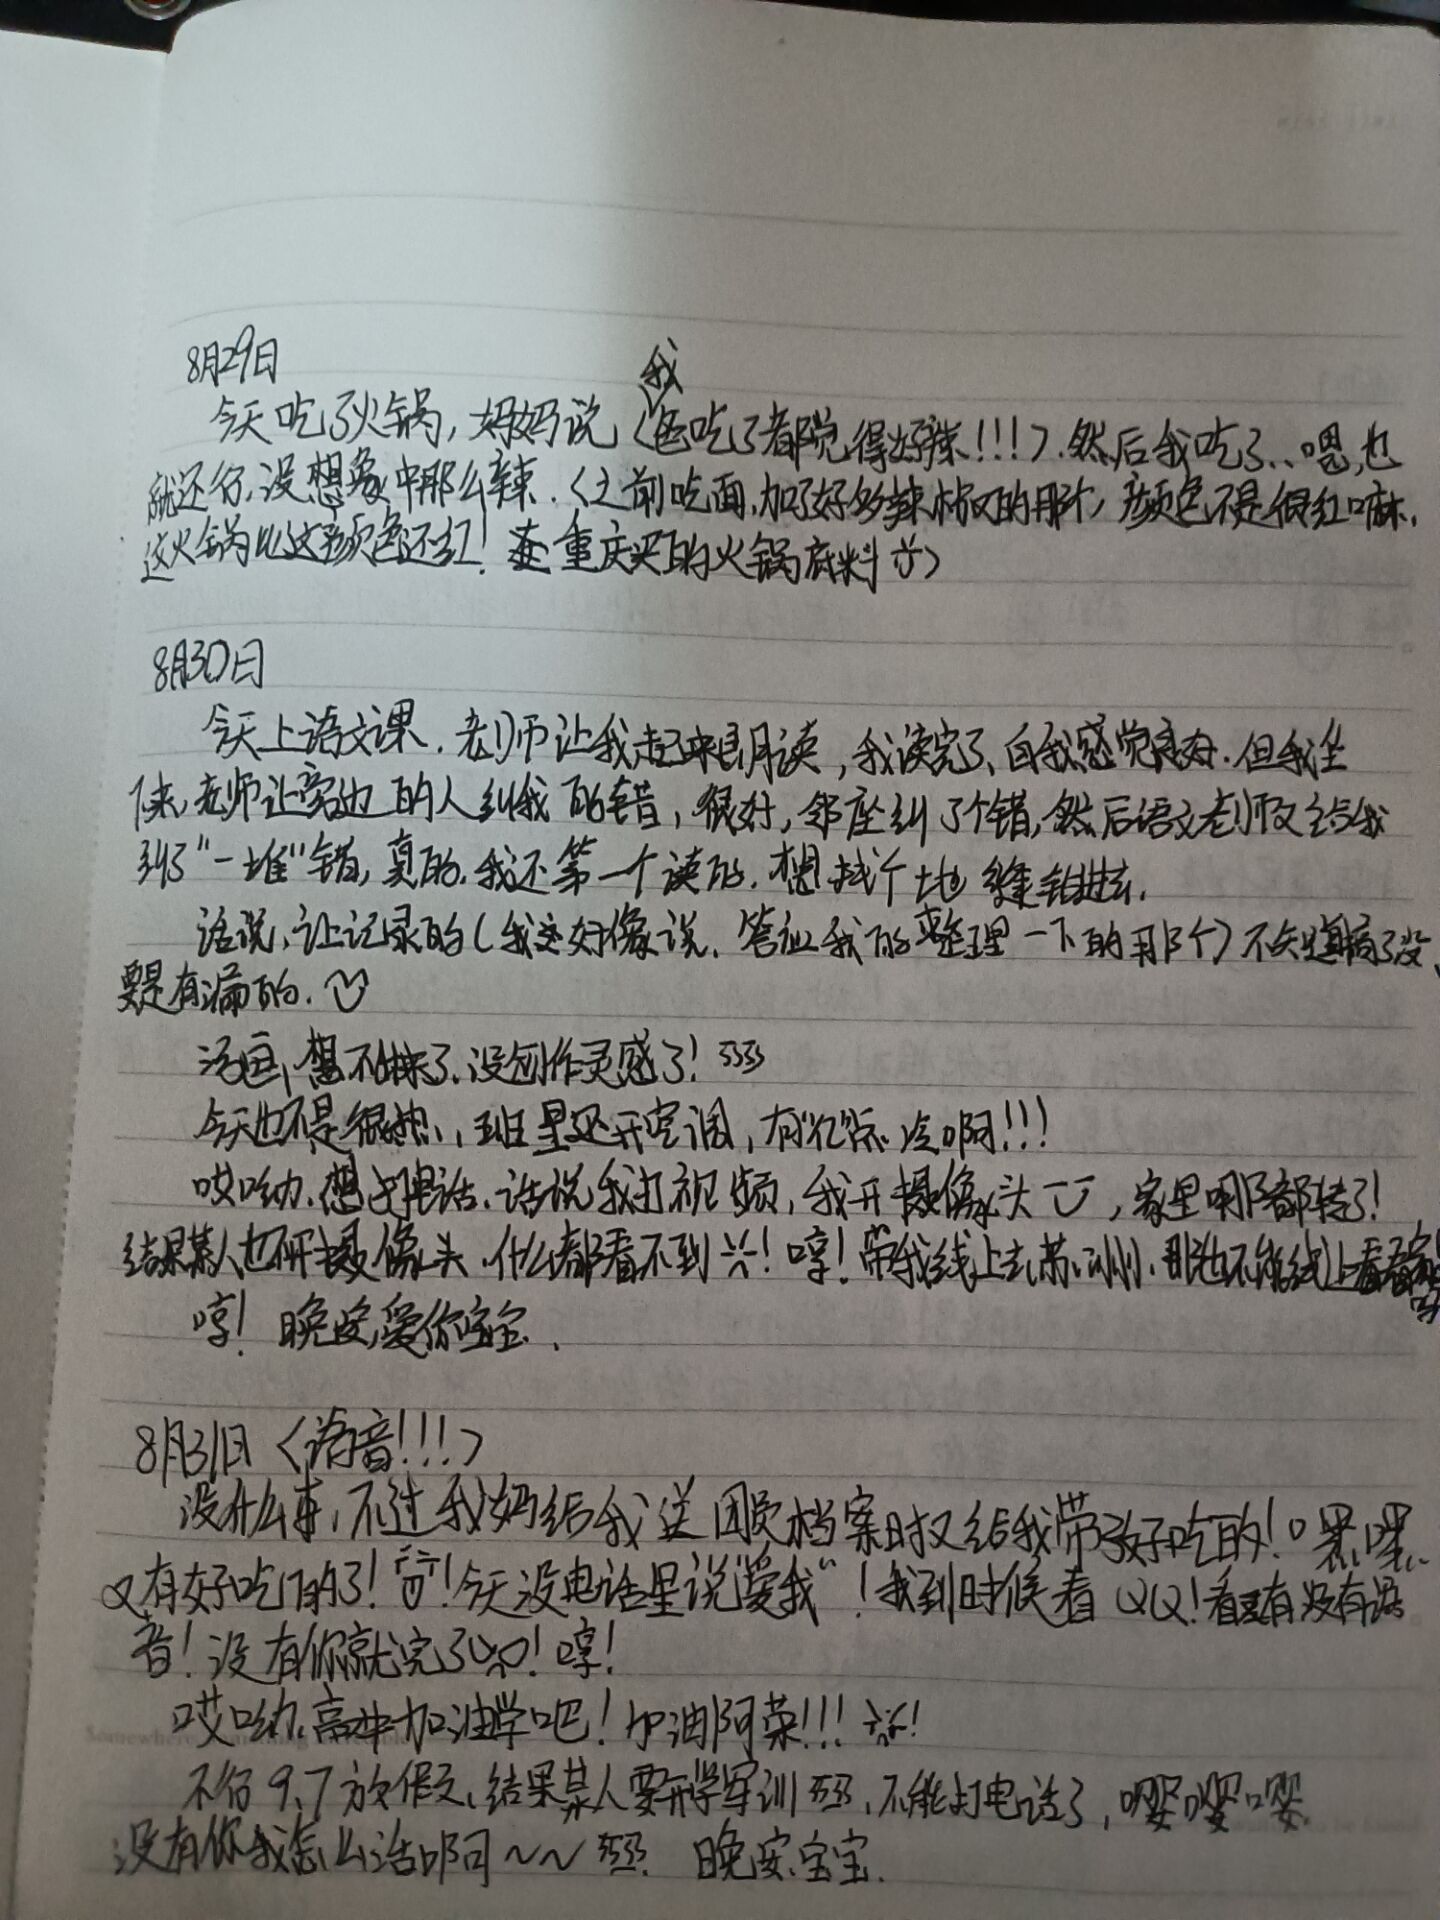 8月29日
今天吃了火锅,妈妈说(我爸吃了都觉得好辣!!!).然后我吃了..嗯,也
就还行,没想象中那么辣.(之前吃面,加了好多辣椒的那个,颜色不是很红嘛,
这火锅比这颜色还红! 重庆买的火锅底料
8月30日
今天上语文课.老师让我起来朗读,我读完了、自我感觉良好.但我坐
下来,老师让旁边的人纠我的错,很好,邻座纠了个错,然后语文老师又给我
纠了“一堆”错,真的.我还第一个读的.想找个地缝钻进去.
话说,让记录的(我之好像说. 我的整理一下的那个)不知道漏了没,
要是有漏的.
漫画,想不出来了.没创作灵感了!
今天也不是很热,班里还开空调,有亿点冷啊!!!
哎呦.想打电话.话说我打视频,我开摄像头,家里哪都转了!
结果某人也不开摄像头.什么都看不到!哼!带我线上去苏州,那也不能线上看看
哼!晚安,爱你宝宝.
8月31日(语音!!!)
没什么事,不过我妈给我送团员档案时又给我带了好吃的!嘿嘿.
又有好吃的了!今天没电话里说“爱我”!我到时候看QQ!看里有没有语
音!没有你就完了!哼!
哎呦.高中加油学吧!加油阿荣!!!
不行9.7放假,结果某人要开学军训,不能打电话了,嘤嘤嘤
没有你我怎么活啊~~ 晚安.宝宝.